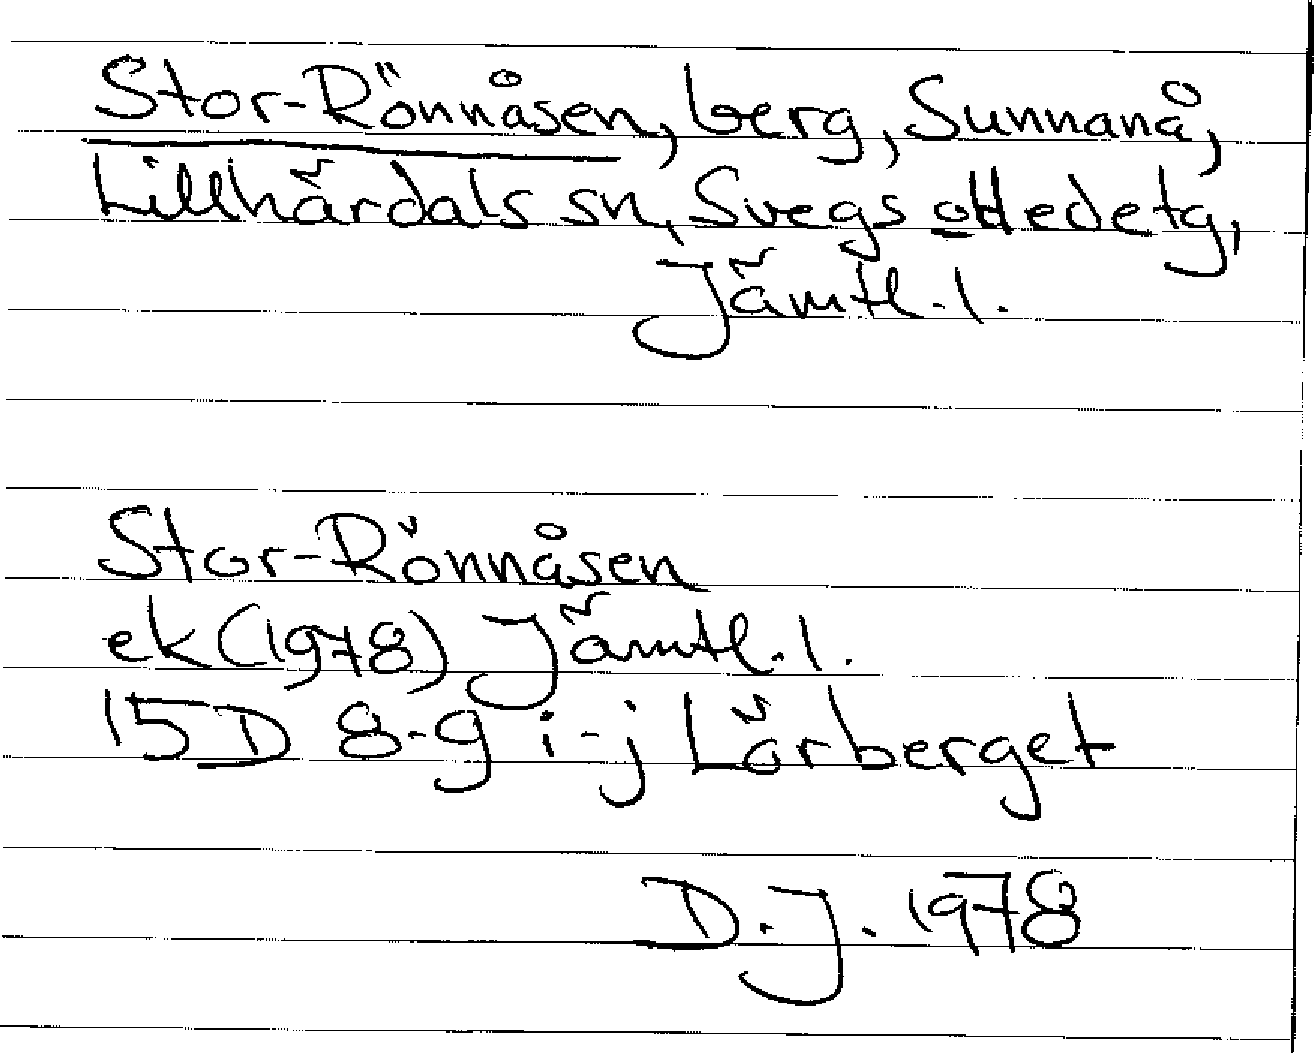 Stor-Rönnåsen, berg, Sunnanå,
Lillhärdals sn, Svegs o Hedetg,
Jämtl. l.
Stor-Rönnåsen
ek (1978) Jämtl. l.
15D 8-9 i-j Lörberget
D.J. 1978